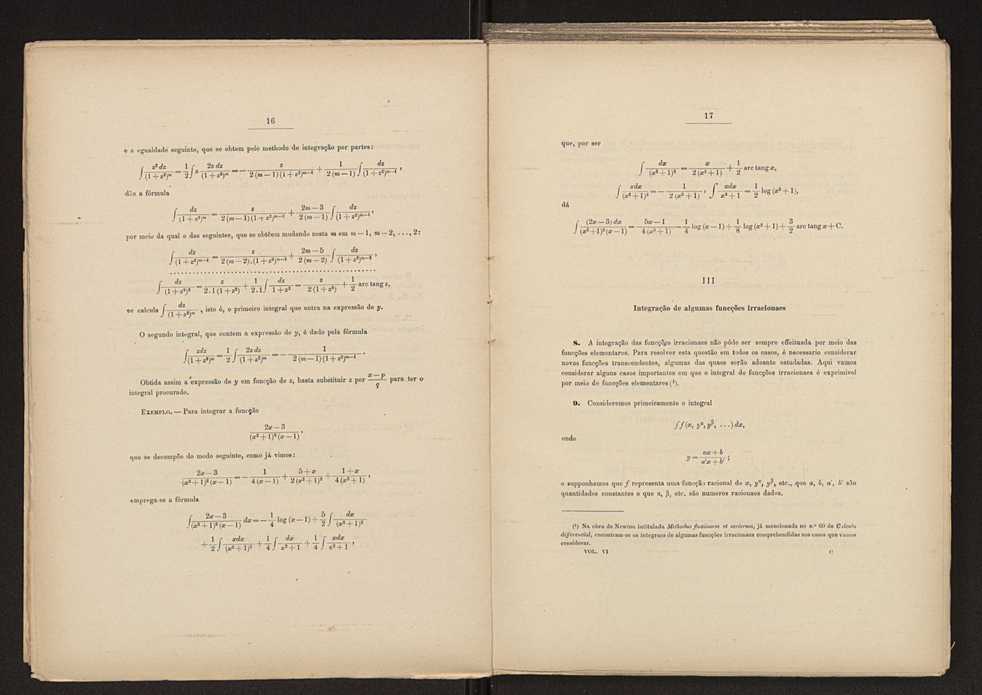 16
e a egualdade seguinte, que se obtem pelo methodo de integração por partes:
∫ z² dz / (1 + z²)^m = 1/2 ∫ z · 2z dz / (1 + z²)^m = − z / 2 (m − 1) (1 + z²)^{m−1} + 1 / 2 (m − 1) ∫ dz / (1 + z²)^{m−1} ,
dão a fórmula
∫ dz / (1 + z²)^m = z / 2 (m − 1) (1 + z²)^{m−1} + 2m − 3 / 2 (m − 1) ∫ dz / (1 + z²)^{m−1} ,
por meio da qual e das seguintes, que se obtêem mudando nesta m em m − 1, m − 2, ..., 2:
∫ dz / (1 + z²)^{m−1} = z / 2 (m − 2) . (1 + z²)^{m−2} + 2m − 5 / 2 (m − 2) ∫ dz / (1 + z²)^{m−2} ,
∫ dz / (1 + z²)² = z / 2 . 1 (1 + z²) + 1 / 2 . 1 ∫ dz / 1 + z² = z / 2 (1 + z²) + 1/2 arc tang z,
se calcula ∫ dz / (1 + z²)^m , isto é, o primeiro integral que entra na expressão de y.
O segundo integral, que contem a expressão de y, é dado pela fórmula
∫ zdz / (1 + z²)^m = 1/2 ∫ 2z dz / (1 + z²)^m = − 1 / 2 (m − 1) (1 + z²)^{m−1} .
Obtida assim a expressão de y em funcção de z, basta substituir z por x − p / q para ter o
integral procurado.
EXEMPLO. — Para integrar a funcção
2x − 3 / (x² + 1)² (x − 1) ,
que se decompõe do modo seguinte, como já vimos:
2x − 3 / (x² + 1)² (x − 1) = − 1 / 4 (x − 1) + 5 + x / 2 (x² + 1)² + 1 + x / 4 (x² + 1) ,
emprega-se a fórmula
∫ 2x − 3 / (x² + 1)² (x − 1) dx = − 1/4 log (x − 1) + 5/2 ∫ dx / (x² + 1)²
+ 1/2 ∫ xdx / (x² + 1)² + 1/4 ∫ dx / x² + 1 + 1/4 ∫ xdx / x² + 1 ,
17
que, por ser
∫ dx / (x² + 1)² = x / 2 (x² + 1) + 1/2 arc tang x,
∫ xdx / (x² + 1)² = − 1 / 2 (x² + 1) , ∫ xdx / x² + 1 = 1/2 log (x² + 1),
dá
∫ (2x − 3) dx / (x² + 1)² (x − 1) = 5x − 1 / 4 (x² + 1) − 1/4 log (x − 1) + 1/8 log (x² + 1) + 3/2 arc tang x + C.
III
Integração de algumas funcções irracionaes
8. A integração das funcções irracionaes não póde ser sempre effeituada por meio das
funcções elementares. Para resolver esta questão em todos os casos, é necessario considerar
novas funcções transcendentes, algumas das quaes serão adeante estudadas. Aqui vamos
considerar alguns casos importantes em que o integral de funcções irracionaes é exprimivel
por meio de funcções elementares (¹).
9. Consideremos primeiramente o integral
∫ f (x, y^α, y^β, ...) dx,
onde
y = ax + b / a'x + b' ;
e supponhamos que f representa uma funcção racional de x, y^α, y^β, etc., que a, b, a', b' são
quantidades constantes e que α, β, etc. são numeros racionaes dados.
(¹) Na obra de Newton intitulada Methodus fluxionum et serierum, já mencionada no n.º 60 do Calculo
differencial, encontram-se os integraes de algumas funcções irracionaes comprehendidas nos casos que vamos
considerar.
VOL. VI C